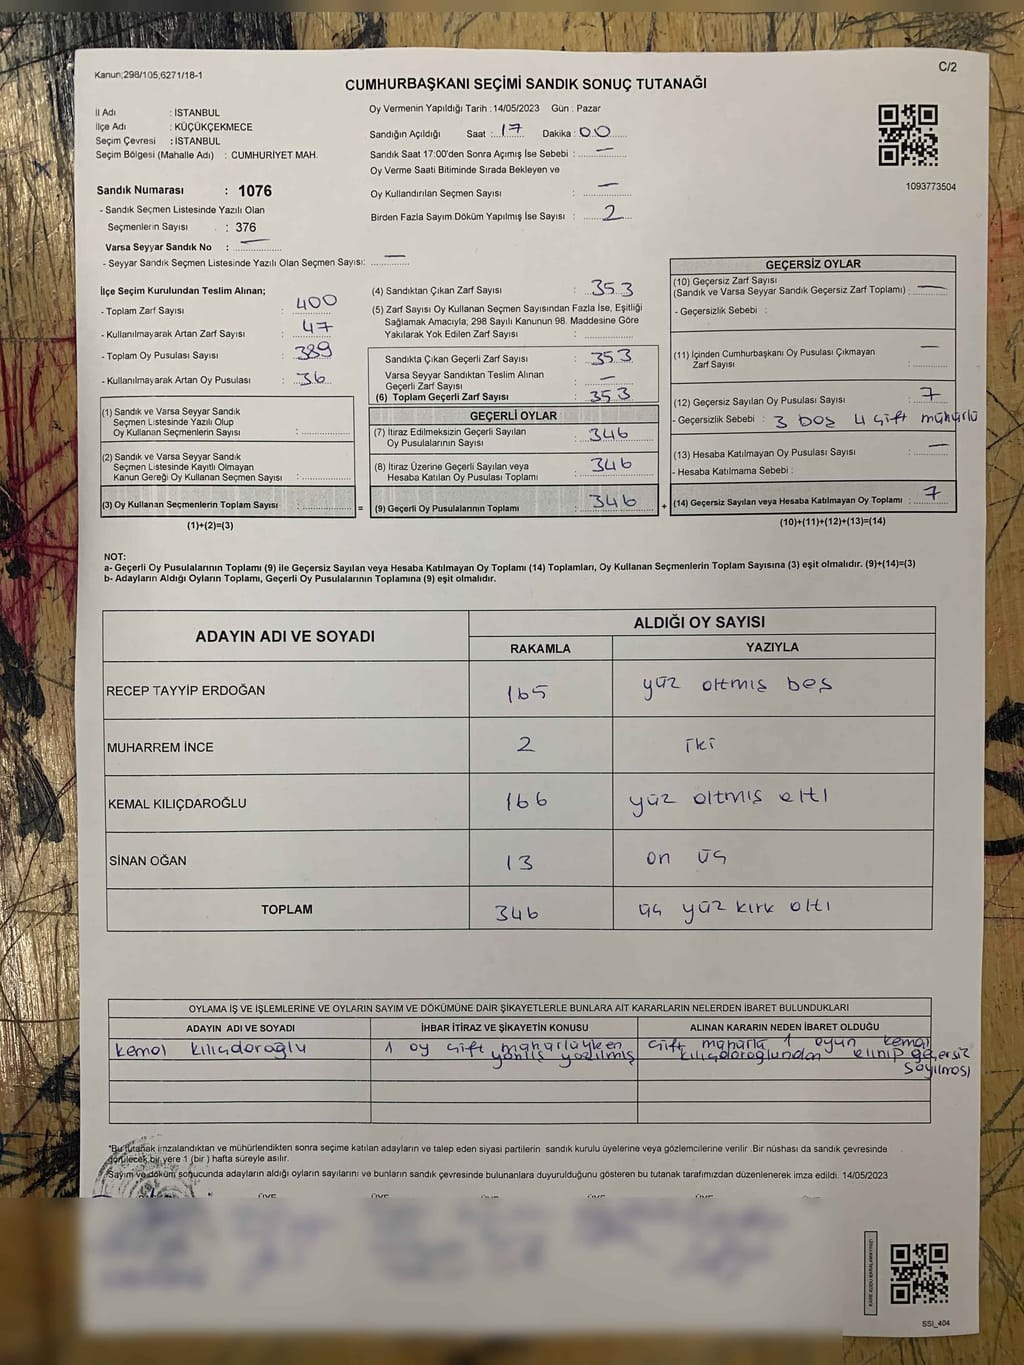 Kanun;298/105,6271/18-1
C/2
CUMHURBAŞKANI SEÇİMİ SANDIK SONUÇ TUTANAĞI
İl Adı : İSTANBUL
İlçe Adı : KÜÇÜKÇEKMECE
Seçim Çevresi : İSTANBUL
Seçim Bölgesi (Mahalle Adı) : CUMHURİYET MAH.
Sandık Numarası : 1076
- Sandık Seçmen Listesinde Yazılı Olan
Seçmenlerin Sayısı : 376
Varsa Seyyar Sandık No : —
- Seyyar Sandık Seçmen Listesinde Yazılı Olan Seçmen Sayısı: —
Oy Vermenin Yapıldığı Tarih : 14/05/2023 Gün : Pazar
Sandığın Açıldığı Saat : 17 Dakika : 00
Sandık Saat 17:00'den Sonra Açımış İse Sebebi : —
Oy Verme Saati Bitiminde Sırada Bekleyen ve
Oy Kullandırılan Seçmen Sayısı : —
Birden Fazla Sayım Döküm Yapılmış İse Sayısı : 2
1093773504
İlçe Seçim Kurulundan Teslim Alınan;
- Toplam Zarf Sayısı : 400
- Kullanılmayarak Artan Zarf Sayısı : 47
- Toplam Oy Pusulası Sayısı : 389
- Kullanılmayarak Artan Oy Pusulası : 36
(1) Sandık ve Varsa Seyyar Sandık
Seçmen Listesinde Yazılı Olup
Oy Kullanan Seçmenlerin Sayısı :
(2) Sandık ve Varsa Seyyar Sandık
Seçmen Listesinde Kayıtlı Olmayan
Kanun Gereği Oy Kullanan Seçmen Sayısı :
(3) Oy Kullanan Seçmenlerin Toplam Sayısı : =
(1)+(2)=(3)
(4) Sandıktan Çıkan Zarf Sayısı : 353
(5) Zarf Sayısı Oy Kullanan Seçmen Sayısından Fazla İse, Eşitliği
Sağlamak Amacıyla; 298 Sayılı Kanunun 98. Maddesine Göre
Yakılarak Yok Edilen Zarf Sayısı :
Sandıkta Çıkan Geçerli Zarf Sayısı : 353
Varsa Seyyar Sandıktan Teslim Alınan
Geçerli Zarf Sayısı : —
(6) Toplam Geçerli Zarf Sayısı : 353
GEÇERLİ OYLAR
(7) İtiraz Edilmeksizin Geçerli Sayılan
Oy Pusulalarının Sayısı : 346
(8) İtiraz Üzerine Geçerli Sayılan veya
Hesaba Katılan Oy Pusulaları Toplamı : 346
(9) Geçerli Oy Pusulalarının Toplamı : 346 +
GEÇERSİZ OYLAR
(10) Geçersiz Zarf Sayısı
(Sandık ve Varsa Seyyar Sandık Geçersiz Zarf Toplamı) : —
- Geçersizlik Sebebi :
(11) İçinden Cumhurbaşkanı Oy Pusulası Çıkmayan
Zarf Sayısı : —
(12) Geçersiz Sayılan Oy Pusulası Sayısı : 7
- Geçersizlik Sebebi : 3 boş 4 çift mühürlü
(13) Hesaba Katılmayan Oy Pusulası Sayısı : —
- Hesaba Katılmama Sebebi :
(14) Geçersiz Sayılan veya Hesaba Katılmayan Oy Toplamı : 7
(10)+(11)+(12)+(13)=(14)
NOT:
a- Geçerli Oy Pusulalarının Toplamı (9) ile Geçersiz Sayılan veya Hesaba Katılmayan Oy Toplamı (14) Toplamları, Oy Kullanan Seçmenlerin Toplam Sayısına (3) eşit olmalıdır. (9)+(14)=(3)
b- Adayların Aldığı Oyların Toplamı, Geçerli Oy Pusulalarının Toplamına (9) eşit olmalıdır.
ADAYIN ADI VE SOYADI
ALDIĞI OY SAYISI
RAKAMLA YAZIYLA
RECEP TAYYİP ERDOĞAN 165 yüz altmış beş
MUHARREM İNCE 2 iki
KEMAL KILIÇDAROĞLU 166 yüz altmış altı
SİNAN OĞAN 13 on üç
TOPLAM 346 üç yüz kırk altı
OYLAMA İŞ VE İŞLEMLERİNE VE OYLARIN SAYIM VE DÖKÜMÜNE DAİR ŞİKAYETLERLE BUNLARA AİT KARARLARIN NELERDEN İBARET BULUNDUKLARI
ADAYIN ADI VE SOYADI İHBAR İTİRAZ VE ŞİKAYETİN KONUSU ALINAN KARARIN NEDEN İBARET OLDUĞU
kemal kılıçdaroğlu 1 oy çift mühürlüyken çift mühürlü 1 oyun kemal
yanlış yazılmış kılıçdaroğlundan alınıp geçersiz
sayılması
*Bu tutanak imzalandıktan ve mühürlendikten sonra seçime katılan adayların ve talep eden siyasi partilerin sandık kurulu üyelerine veya gözlemcilerine verilir. Bir nüshası da sandık çevresinde
görülecek bir yere 1 (bir) hafta süreyle asılır.
*Sayım ve döküm sonucunda adayların aldığı oyların sayılarını ve bunların sandık çevresinde bulunanlara duyurulduğunu gösteren bu tutanak tarafımızdan düzenlenerek imza edildi. 14/05/2023
SSİ_404